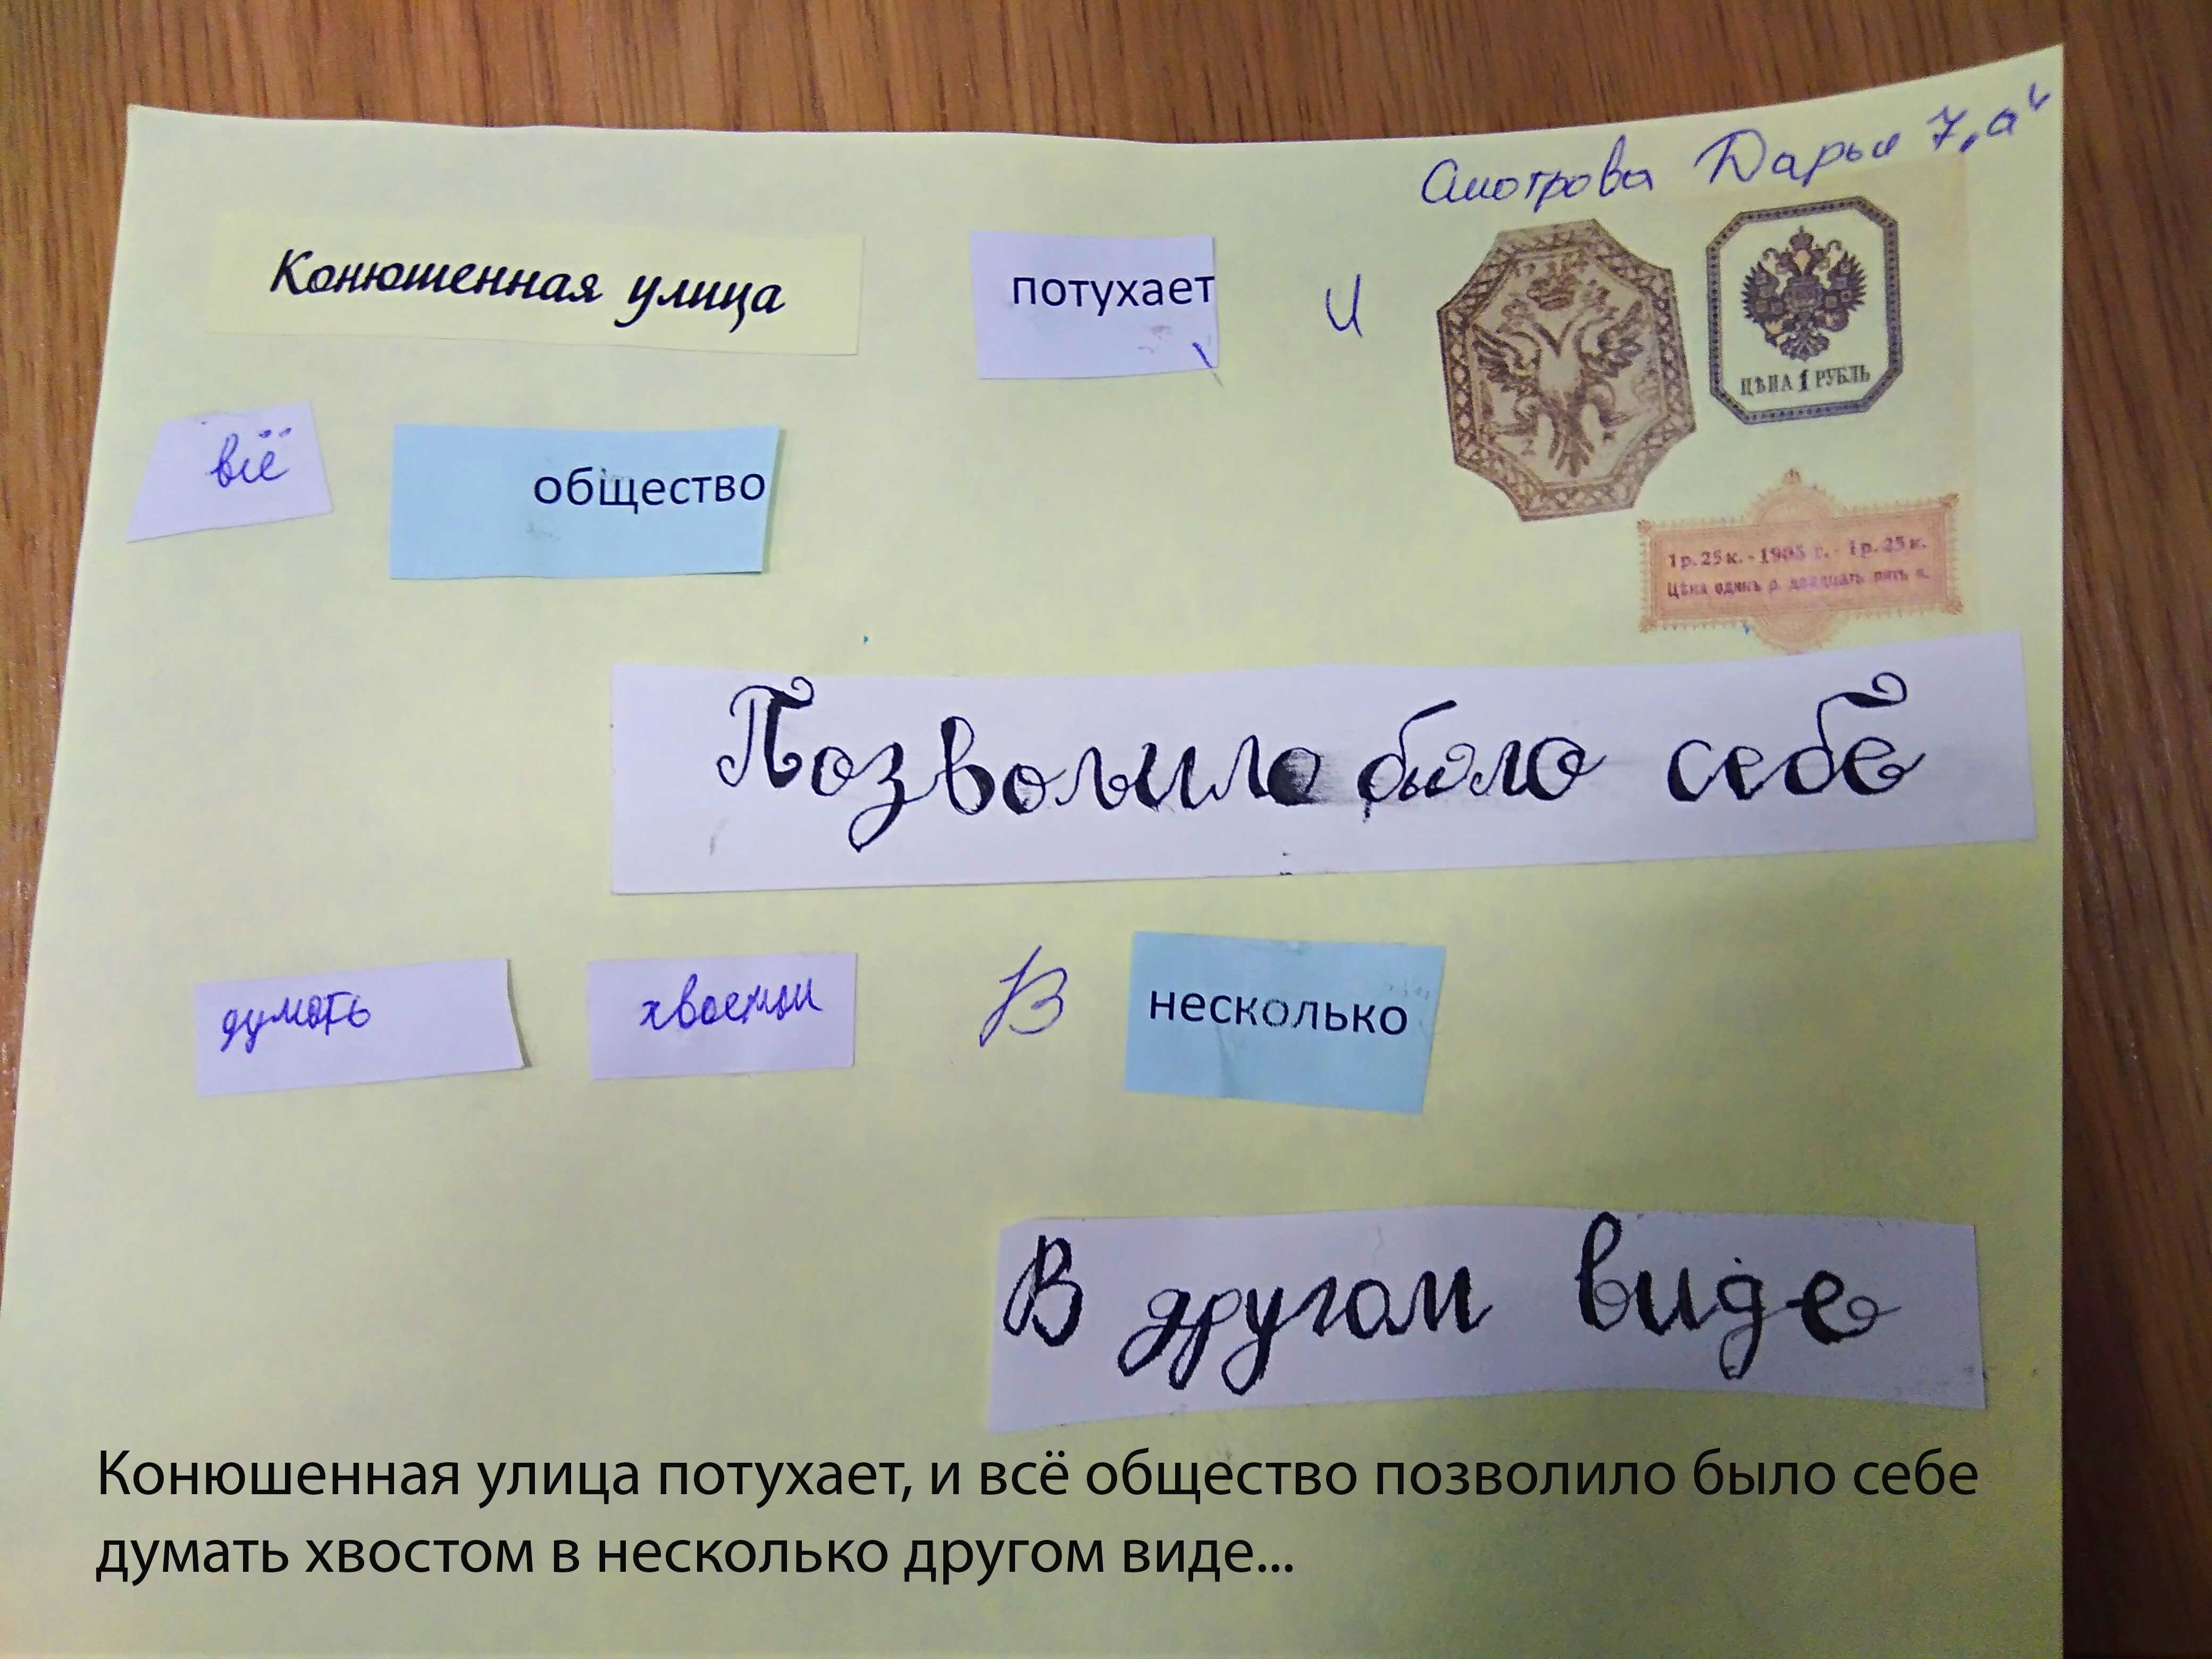 Смотрова Дарья 7 „а“
Конюшенная улица потухает и
ЦѢНА 1 РУБЛЬ
всё общество
1 р. 25 к. - 1905 г. - 1 р. 25 к.
Цѣна одинъ р. двадцать пять к.
Позволило было себе
думать хвостом В несколько
В другом виде
Конюшенная улица потухает, и всё общество позволило было себе
думать хвостом в несколько другом виде...